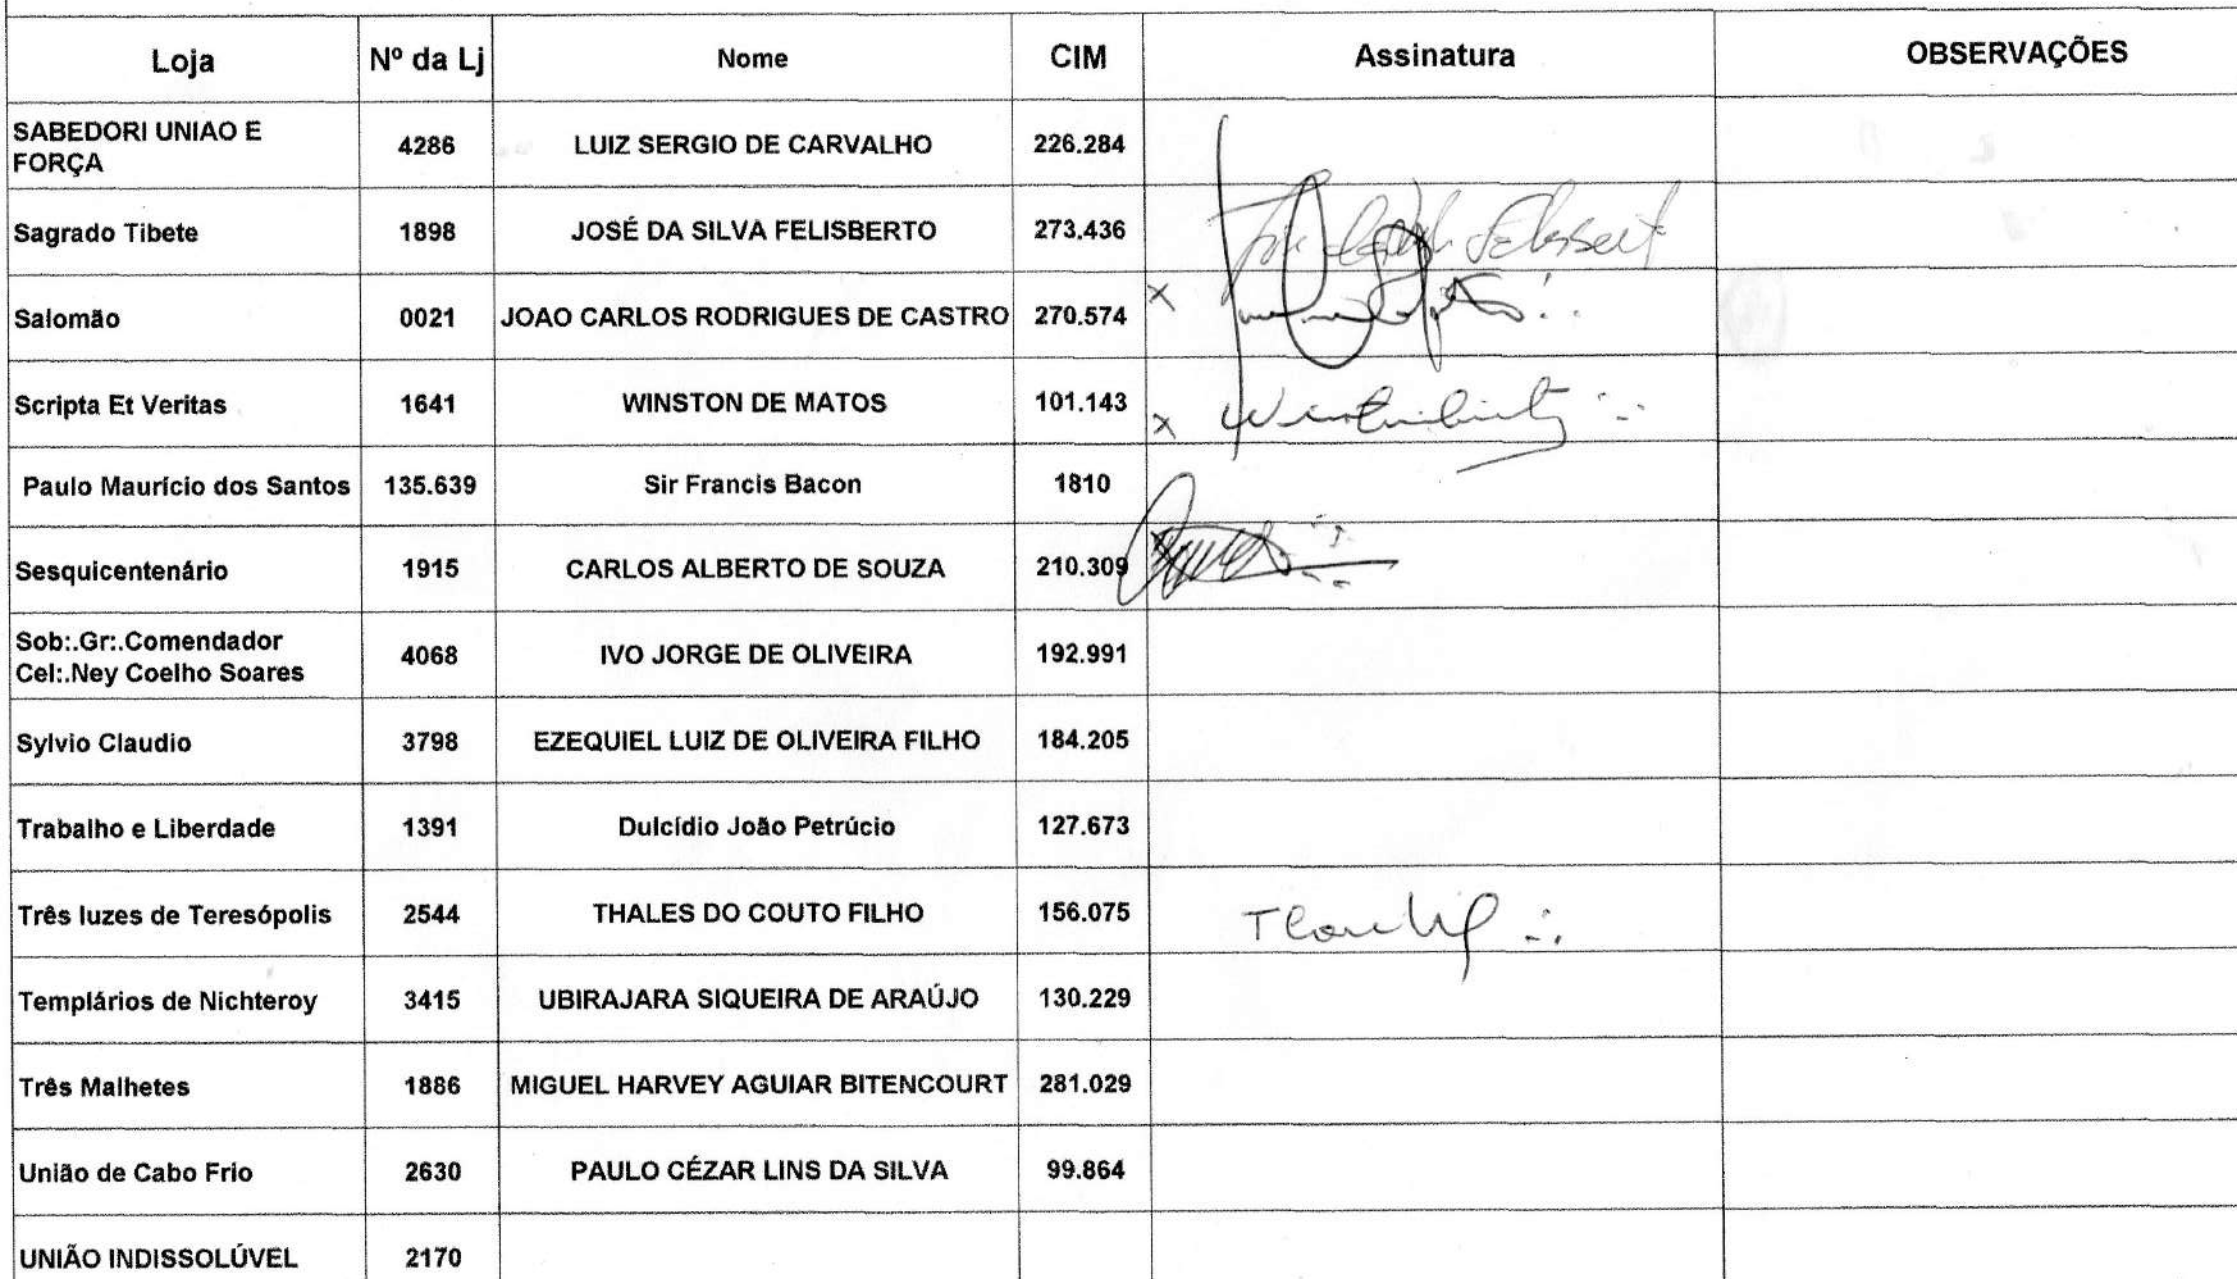 Loja Nº da Lj Nome CIM Assinatura OBSERVAÇÕES
SABEDORI UNIAO E
FORÇA 4286 LUIZ SERGIO DE CARVALHO 226.284
Sagrado Tibete 1898 JOSÉ DA SILVA FELISBERTO 273.436
Salomão 0021 JOAO CARLOS RODRIGUES DE CASTRO 270.574 x
Scripta Et Veritas 1641 WINSTON DE MATOS 101.143 x
Paulo Maurício dos Santos 135.639 Sir Francis Bacon 1810
Sesquicentenário 1915 CARLOS ALBERTO DE SOUZA 210.309
Sob:.Gr:.Comendador
Cel:.Ney Coelho Soares 4068 IVO JORGE DE OLIVEIRA 192.991
Sylvio Claudio 3798 EZEQUIEL LUIZ DE OLIVEIRA FILHO 184.205
Trabalho e Liberdade 1391 Dulcídio João Petrúcio 127.673
Três luzes de Teresópolis 2544 THALES DO COUTO FILHO 156.075
Templários de Nichteroy 3415 UBIRAJARA SIQUEIRA DE ARAÚJO 130.229
Três Malhetes 1886 MIGUEL HARVEY AGUIAR BITENCOURT 281.029
União de Cabo Frio 2630 PAULO CÉZAR LINS DA SILVA 99.864
UNIÃO INDISSOLÚVEL 2170